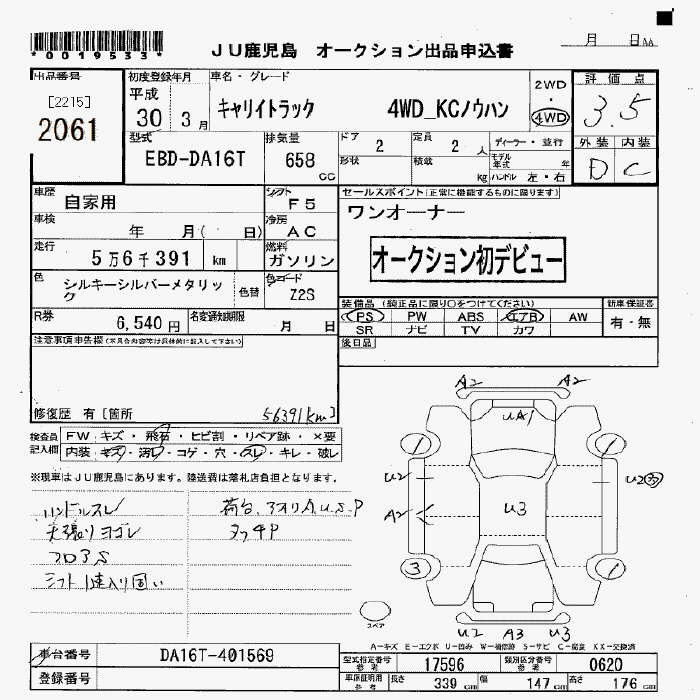 *0019533*
JU鹿児島 オークション出品申込書
月 日AA
出品番号
[2215]
2061
初度登録年月
平成
30 3月
車名・グレード
キャリイトラック 4WD_KCノウハン
2WD
・
4WD
評価点
3.5
外装 内装
D C
型式
EBD-DA16T
排気量
658
CC
ドア 2
形状
定員 2 人
積載 kg
ディーラー・並行
モデル年式 年
ハンドル 左・右
車歴 自家用
シフト F5
車検 年 月( 日)
冷房 AC
走行 5万6千391 km
燃料 ガソリン
色 シルキーシルバーメタリック
色替
色コード Z2S
R券 6,540円
名変通知期限 月 日
セールスポイント(正常に機能するものに限ります)
ワンオーナー
オークション初デビュー
装備品 (純正品に限り○をつけてください)
新車保証書
PS PW ABS エアB AW
SR ナビ TV カワ
有・無
後日品
注意事項申告欄(不具合内容等は具体的に記入して下さい)
修復歴 有 [箇所 56391km]
検査員記入欄
FW キズ・飛石・ヒビ割・リペア跡・×要
内装 キズ・汚レ・コゲ・穴・スレ・キレ・破レ
※現車はJU鹿児島にあります。陸送費は落札店負担となります。
ハンドルスレ
天張りヨゴレ
フロアS
シフト1速入り固い
荷台、アオリA.U.S.P
タッチP
A2 A2
UA1
1 1
U2
U2
A2
U3
3 1
スペア
U2 A3 U3
A-キズ E-エクボ U-凹み W-補修跡 S-サビ C-腐食 XX-交換済
車台番号 DA16T-401569
登録番号
型式指定番号 参考 17596
類別区分番号 参考 0620
車庫証明用 参考 長さ 339 cm 幅 147 cm 高さ 176 cm